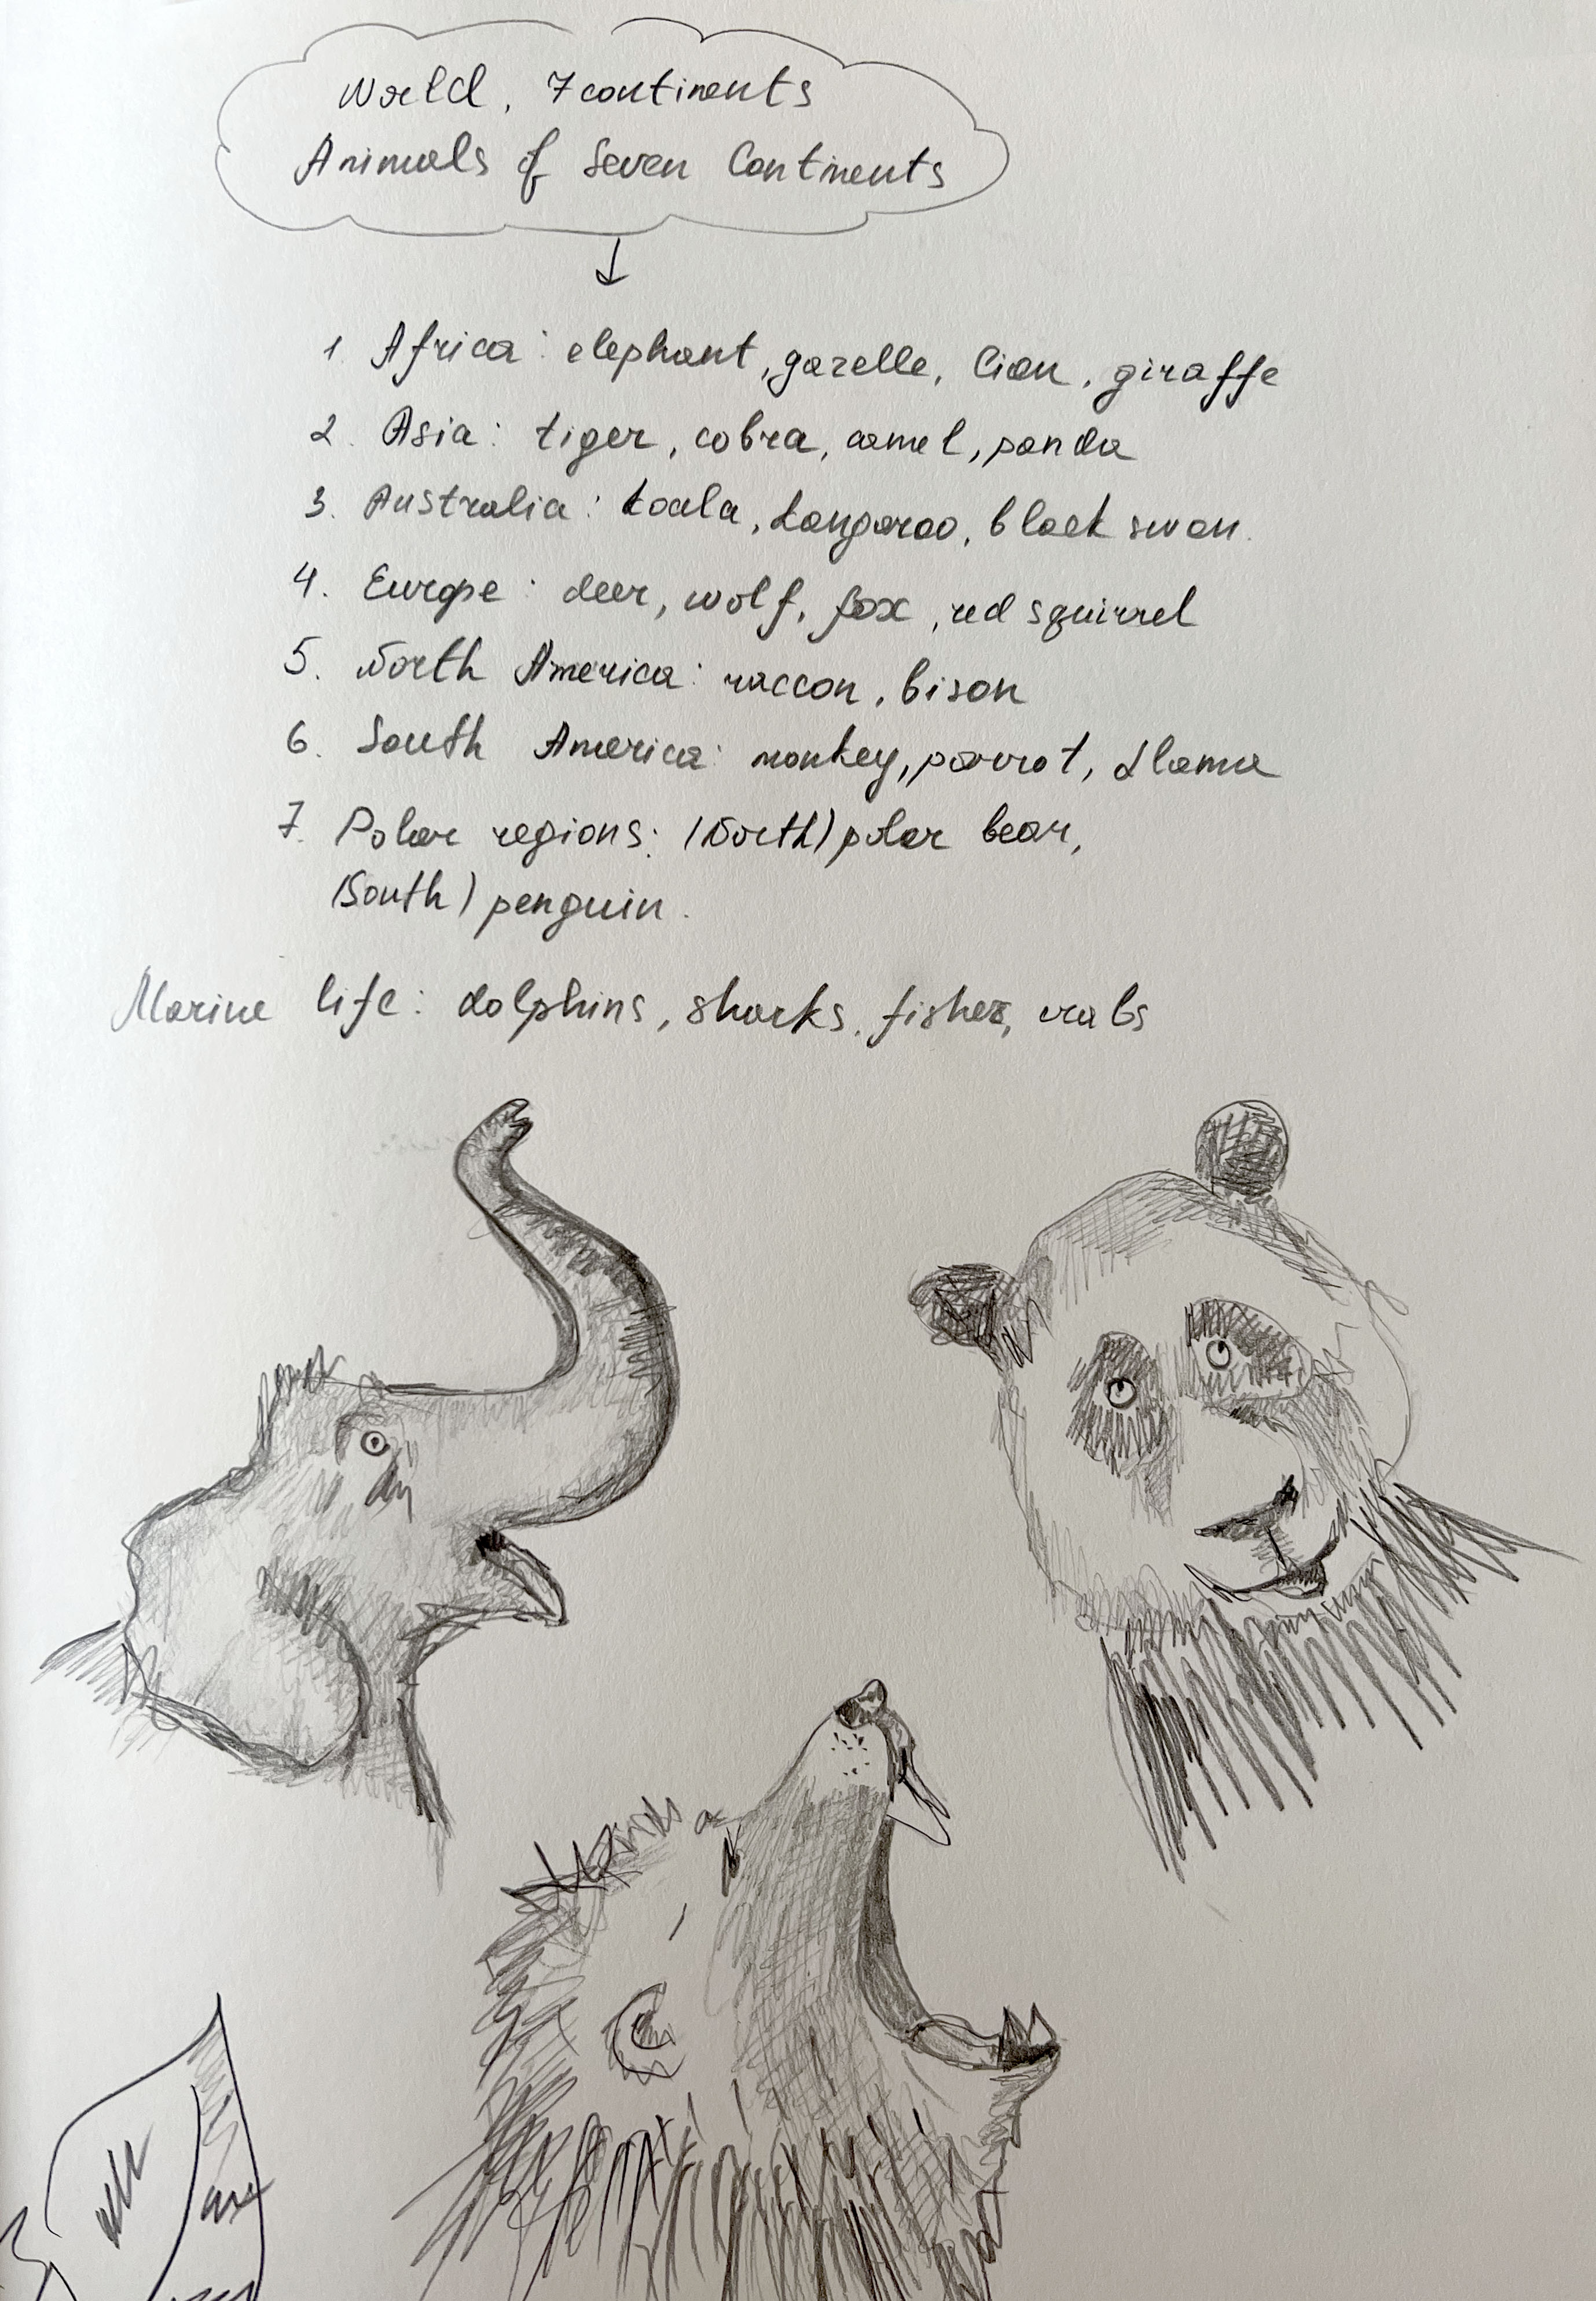 World, 7 continents
Animals of Seven Continents
1. Africa: elephant, gazelle, lion, giraffe
2. Asia: tiger, cobra, camel, panda
3. Australia: koala, kangaroo, black swan.
4. Europe: deer, wolf, fox, red squirrel
5. North America: raccon, bison
6. South America: monkey, parrot, Llama
7. Polar regions: (North) polar bear,
(South) penguin.
Marine life: dolphins, sharks, fishes, crabs